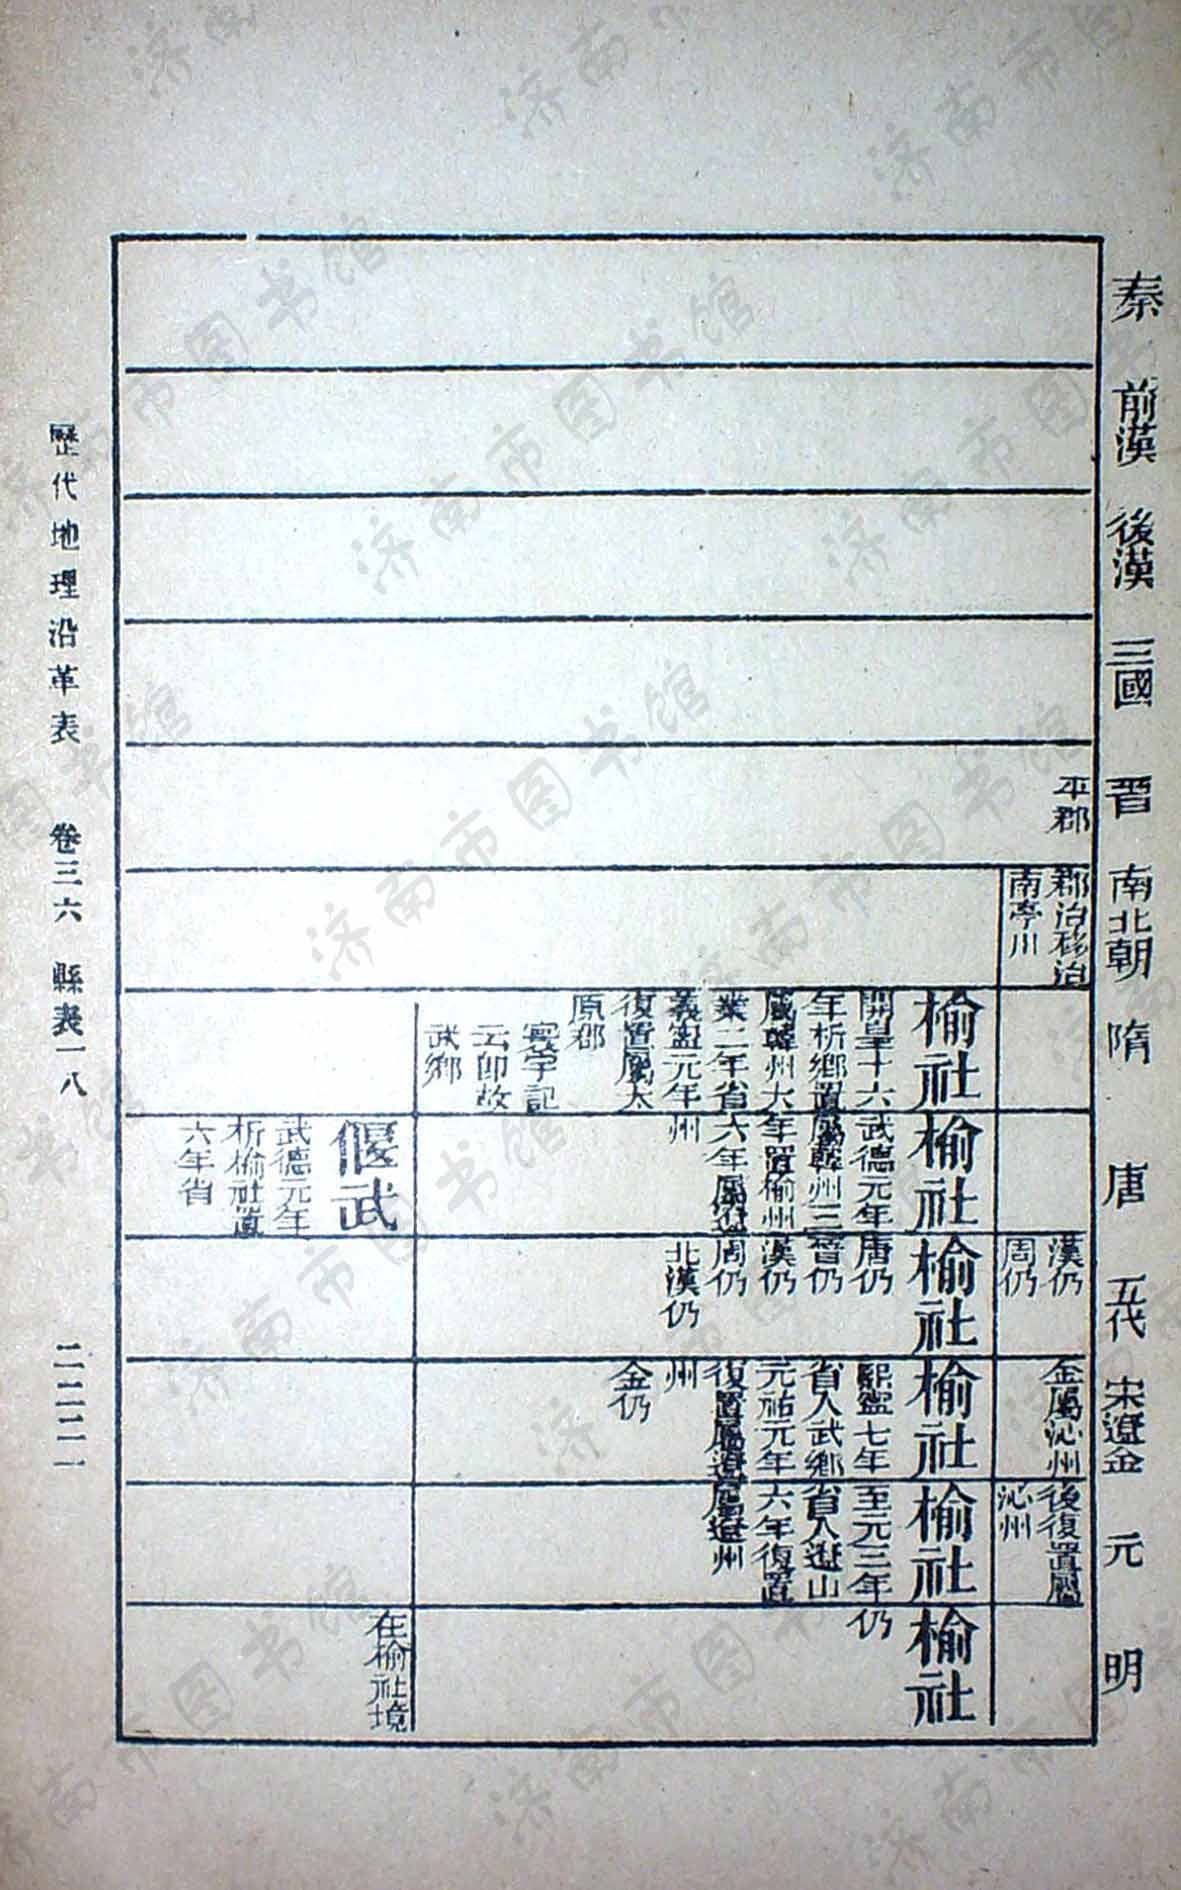 秦
前漢
後漢
三國
晋
南北朝
隋
唐
五代
宋遼金
元
明
平郡
郡治移治
南亭川
漢仍
周仍
金屬沁州
後復置屬
沁州
榆社
開皇十六
年析鄉置
屬韓州大
業二年省
義寧元年
復置屬太
原郡
寰宇記
云卽故
武鄉
榆社
武德元年
屬韓州三
年置榆州
六年屬遼
州
榆社
唐仍
晉仍
漢仍
周仍
北漢仍
榆社
熙寧七年
省入武鄉
元祐元年
復置屬遼
州
金仍
榆社
至元三年
省入遼山
六年復置
屬遼州
榆社
仍
偃武
武德元年
析榆社置
六年省
在榆社境
歷代地理沿革表 卷三六 縣表一八 二二二一
济南市图书馆